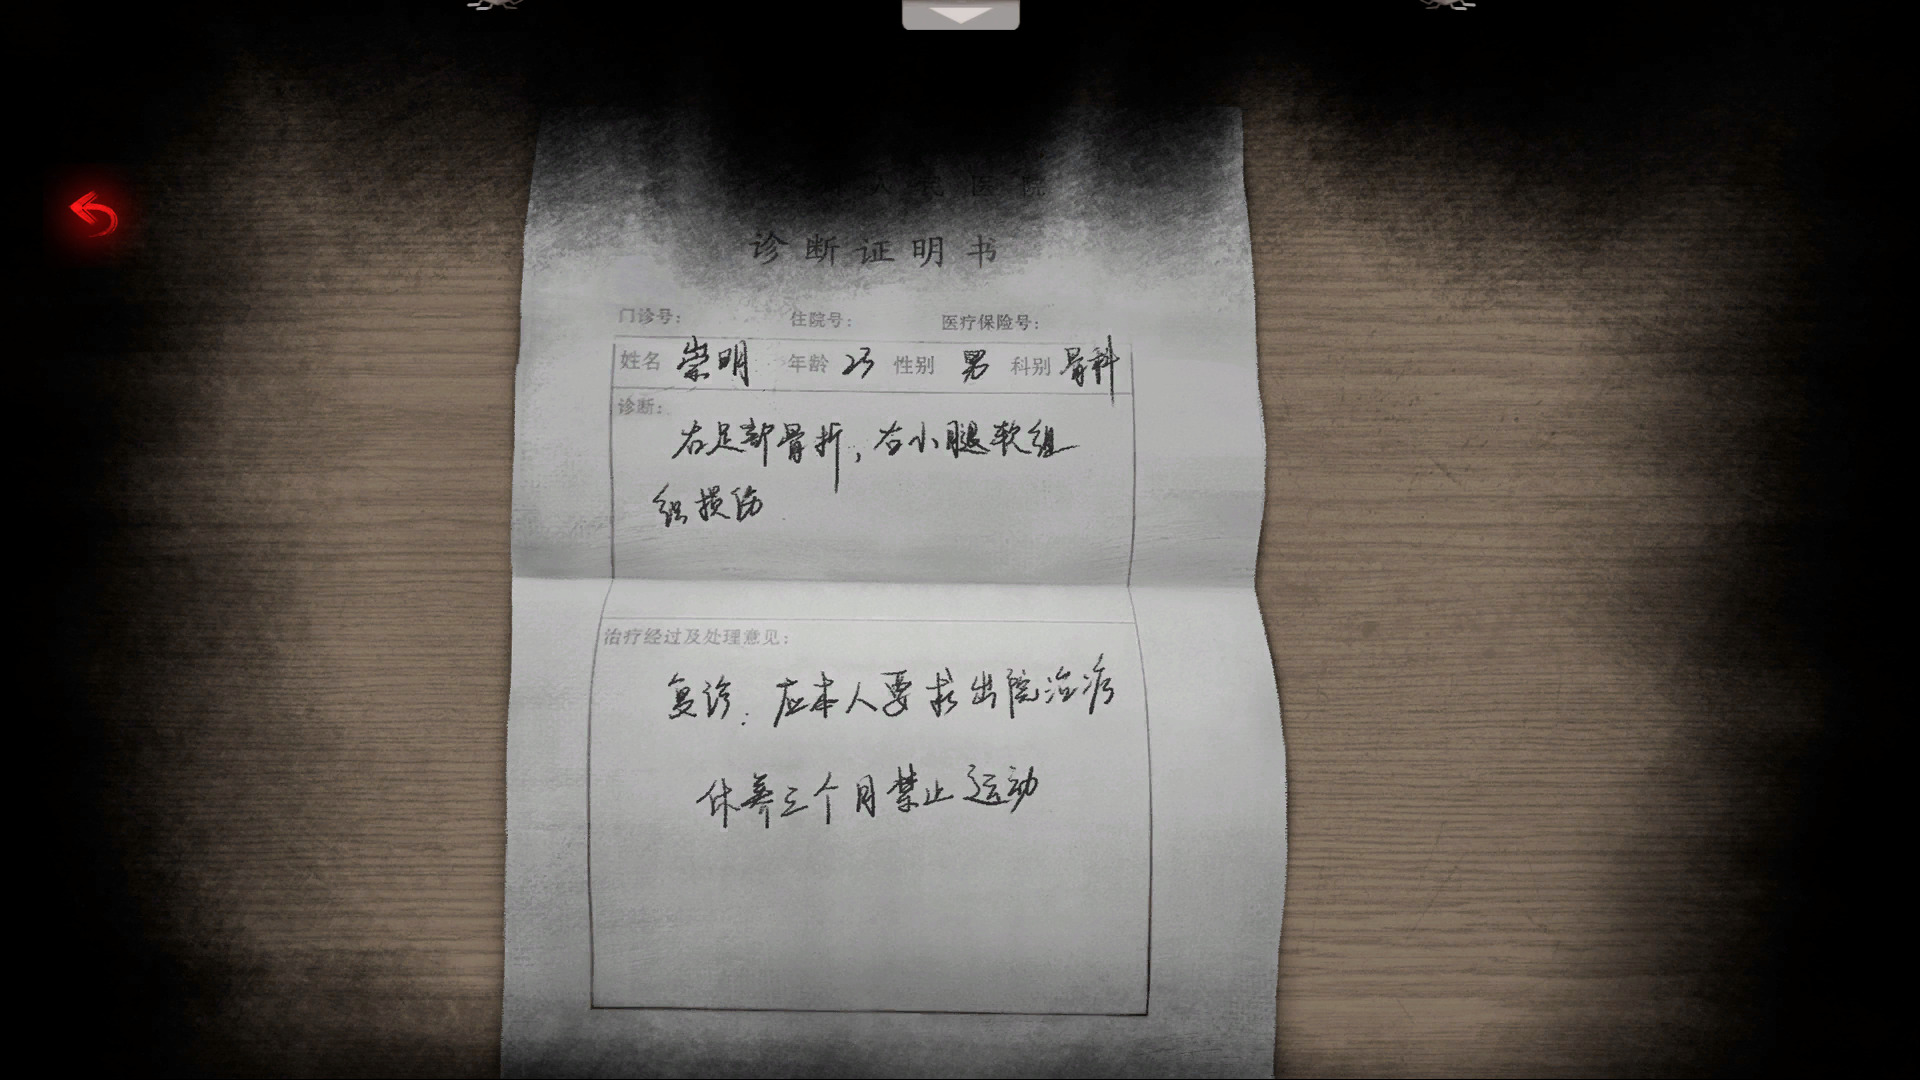 人民医院
诊断证明书
门诊号： 住院号： 医疗保险号：
姓名 崇明 年龄 25 性别 男 科别 骨科
诊断：
右足部骨折，右小腿软组
织损伤
治疗经过及处理意见：
复诊：应本人要求出院治疗
休养三个月禁止运动